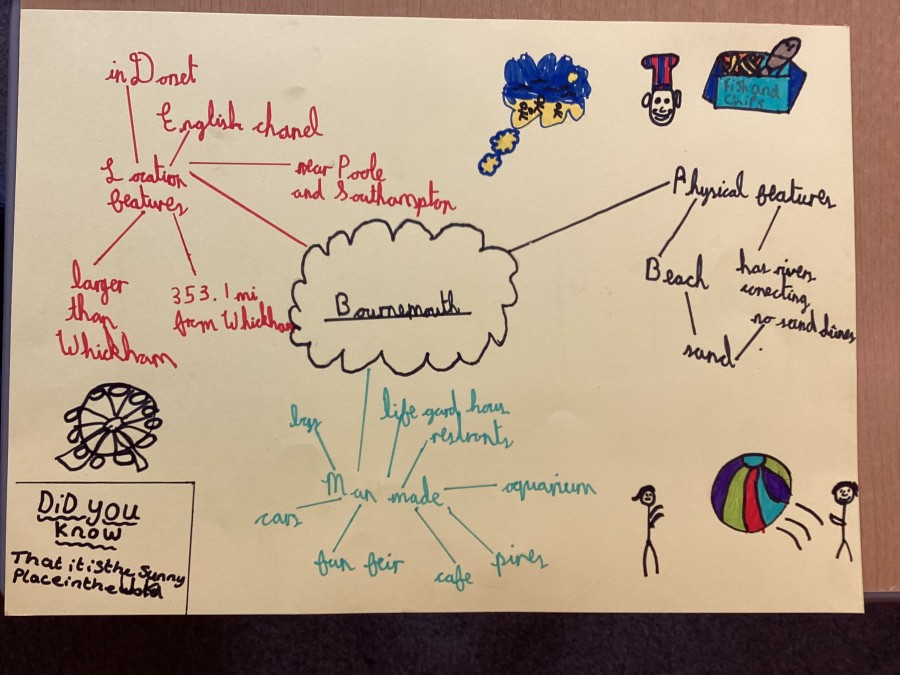 in Dorset
English chanel
Location
features
near Poole
and Southampton
larger
than
Whickham
353.1 mi
from Whickham
Fish and
chips
Physical features
Beach
has rivers
conecting
no sand dunes
sand
Bournemouth
life gard hous
restronts
Man made
aquarium
cars
fun feir
cafe
pires
DiD you
know
That it is the Sunny
Place in the